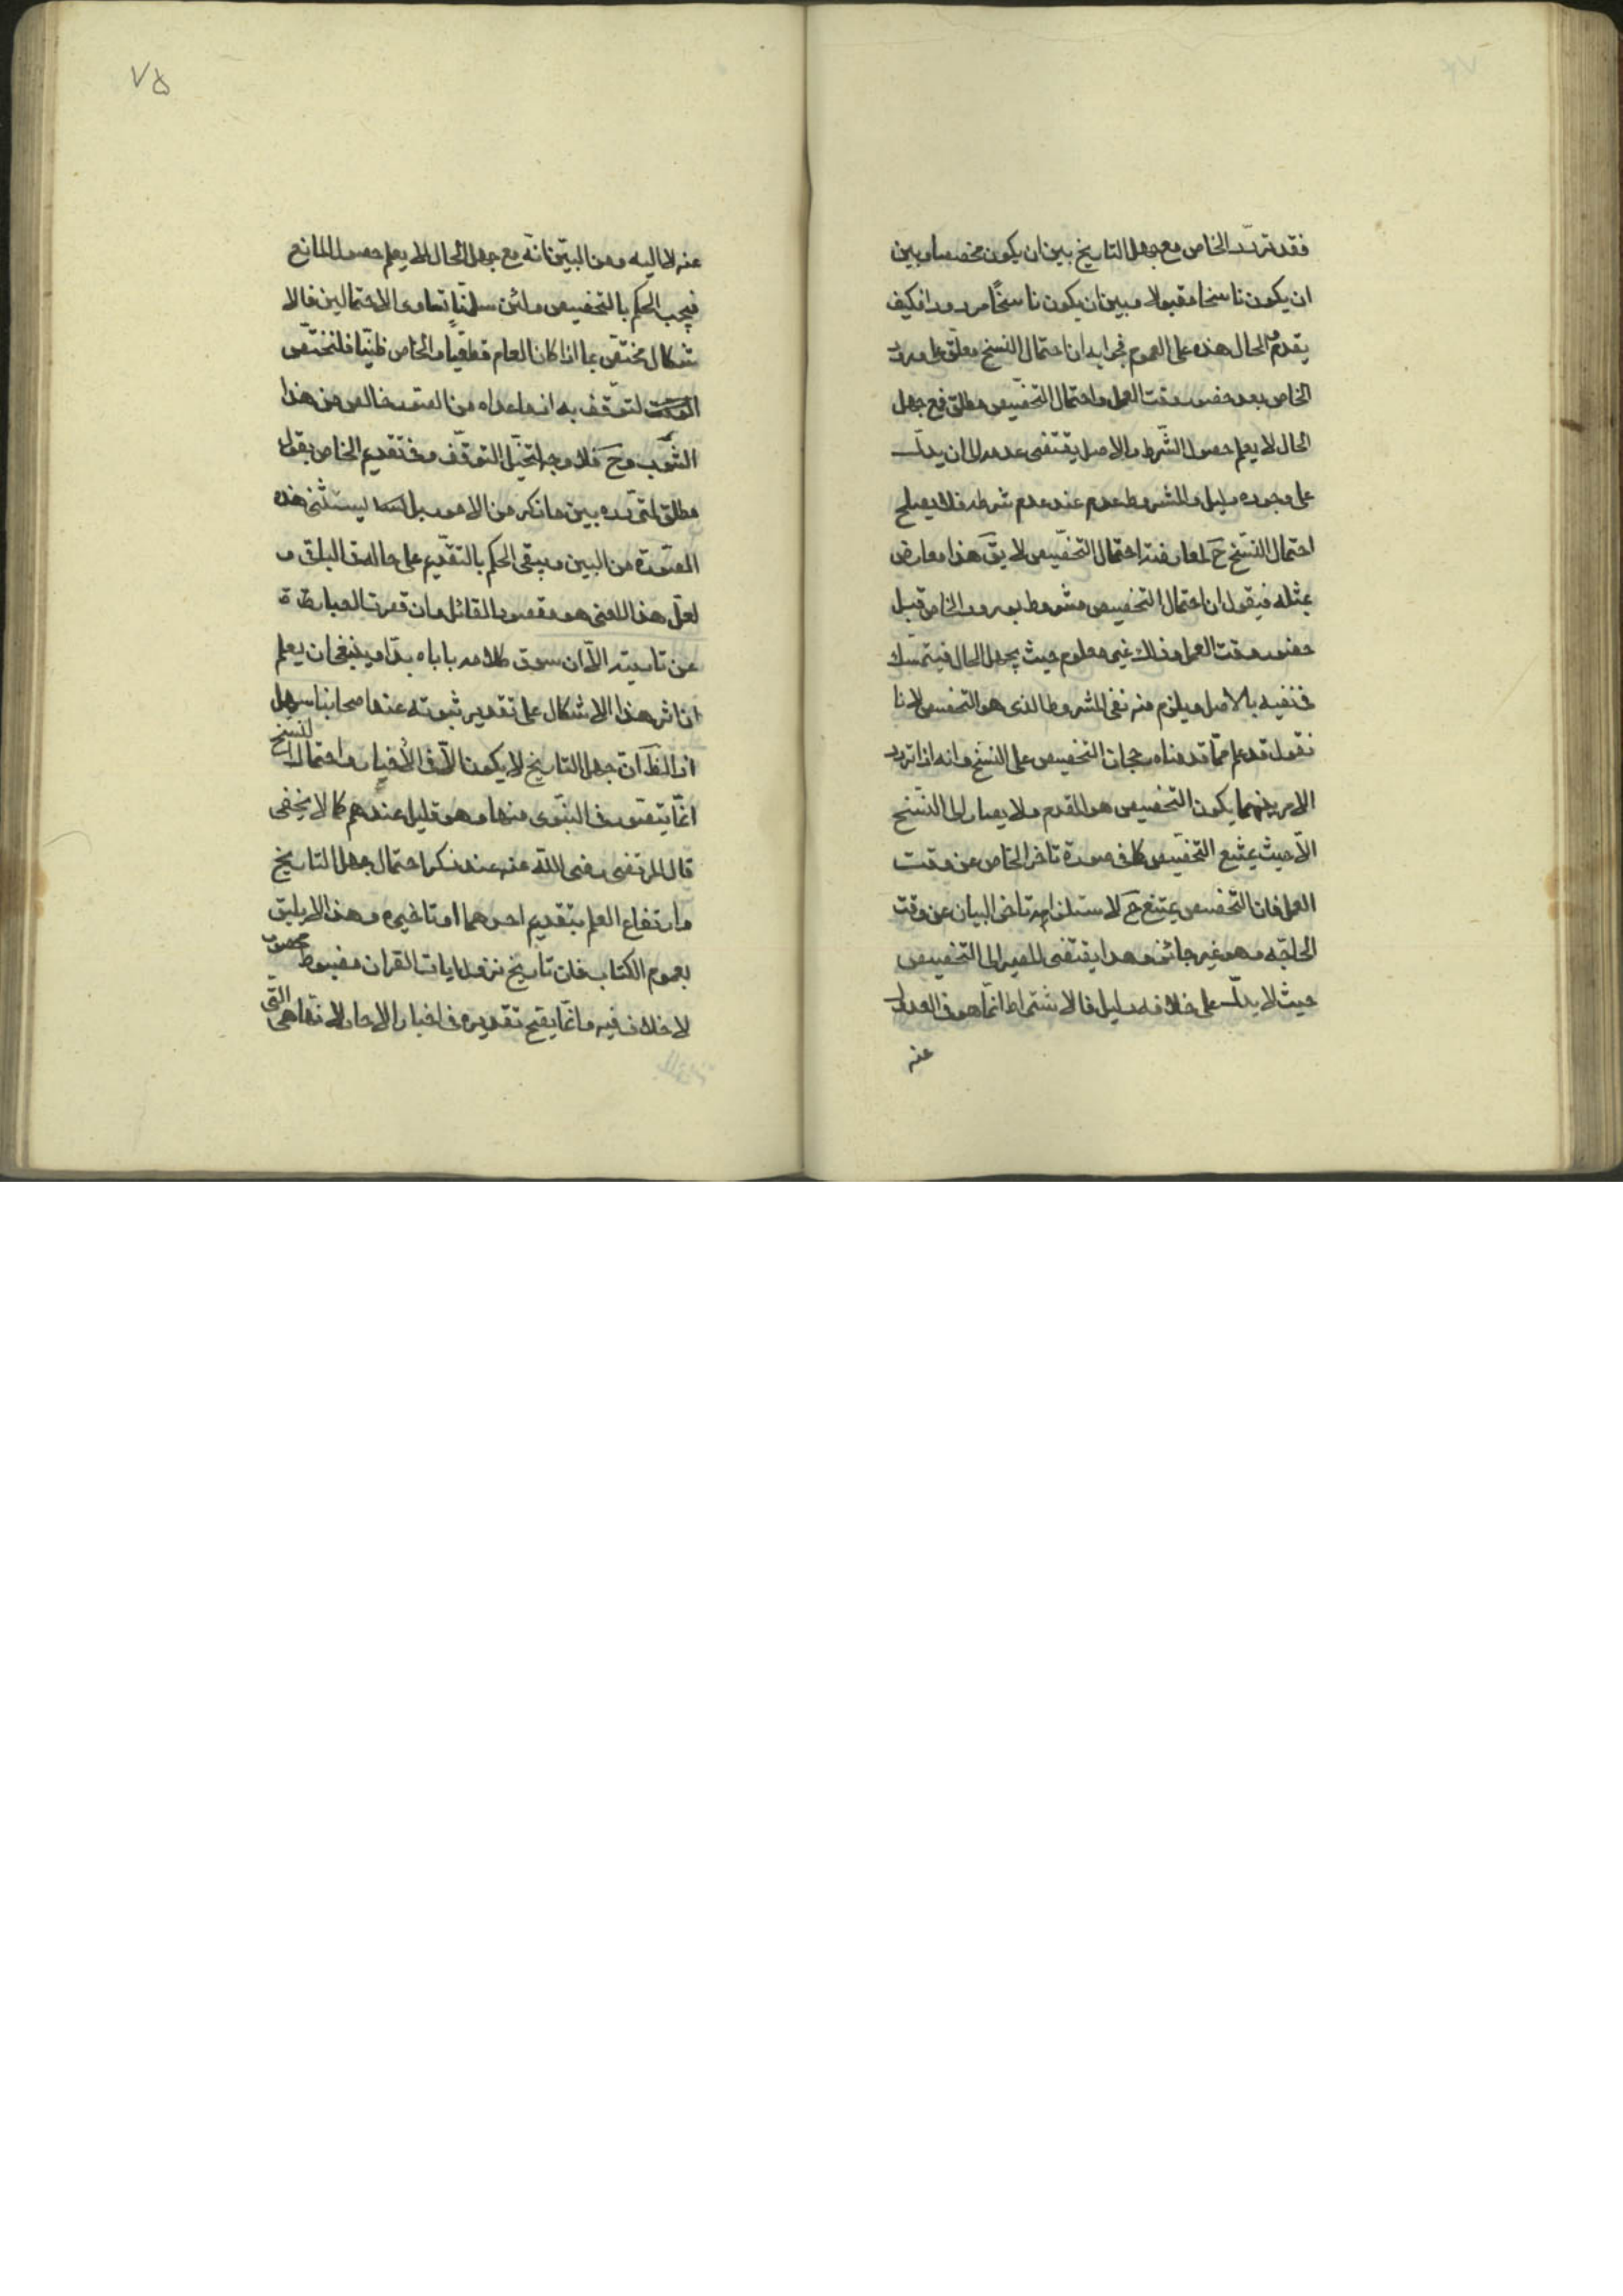 فقد تردّد الخاص مع جهل التاريخ بين ان يكون مخصصا و بين
ان يكون ناسخا مقبولا و بين ان يكون ناسخًا مردودا فكيف
يقدم و الحال هذه على العموم فجوابه ان احتمال النسخ معلّق على ورود
الخاص بعد حضور وقت العمل و احتمال التخصيص مطلق فمع جهل
الحال لا يعلم حصول الشّرط و الاصل يقتضى عدمه الى ان يدلّ
على وجوده دليل و المشروط عدم عند عدم شرطه فلا يصلح
احتمال النّسخ حَ لمعارضة احتمال التخصيص لا يقَ هذا معارض
بمثله فيقول ان احتمال التخصيص مشروط بورود الخاص قبل
حضور وقت العمل و ذلك غير معلوم حيث يجهل الحال فيتمسّك
فى نفيه بالاصل و يلزم منه نفى المشروط الذى هو التخصيص لانا
نقول قد علم ممّا قدمناه رجحان التخصيص على النسخ و انه اذا تردد
الامر بينهما يكون التخصيص هو المقدم و لا يصار الى النّسخ
الّا حيث يمتنع التخصيص كما فى صورة تاخر الخاص عن وقت
العمل فان التخصيص يمتنع حَ لاستلزامه تاخر البيان عن وقت
الحاجه و هو غير جائز و هذا يقتضى المصير الى التخصيص
حيث لا يدلّ على خلافه دليل فالاشتراط انّما هو فى العدول
عنه
٧٥
عنه لا اليه و من البيّن انّه مع جهل الحال لا يعلم حصول المانع
فيجب الحكم بالتخصيص و لئن سلّمنا تساوى الاحتمالين فالا
شكال مختصّ بما اذا كان العام قطعيّا و الخاص ظنّيّا فلنختصّ
التوقّف به اذ ما عداه من الصّور خالص من هذا
الشّوب و حَ فلا وجه لتخيّل التوقّف و فى تقديم الخاص بقول
مطلق لتردّده بين ما ذكر من الامور بل يستثنى هذه
الصّورة من البين و يبقى الحكم بالتقديم على حاله فى الباقى و
لعلّ هذا المعنى هو مقصود القائل و ان قصرت العبارة
عن تاديته الّا ان سوق كلامه ياباه بدّا و ينبغى ان يعلم
ان اثر هذا الاشكال على تقدير ثبوته عند اصحابنا سهل
اذ الظَ انّ جهل التاريخ لا يكون الّا فى الاخبار و احتمال النّسخ
انّما يتصّور فى النبّوى منها و هو قليل عندهم كما لا يخفى
قال المرتضى رضى اللّه عنه عند ذكر احتمال جهل التاريخ
و ارتفاع العلم بتقديم احدهما او تاخيره و هذا لا يليق
بعموم الكتاب فان تاريخ نزول ايات القران مضبوط محصور
لا خلاف فيه و انّما يصّح تقديره فى اخبار الاحاد لانّها هى التى